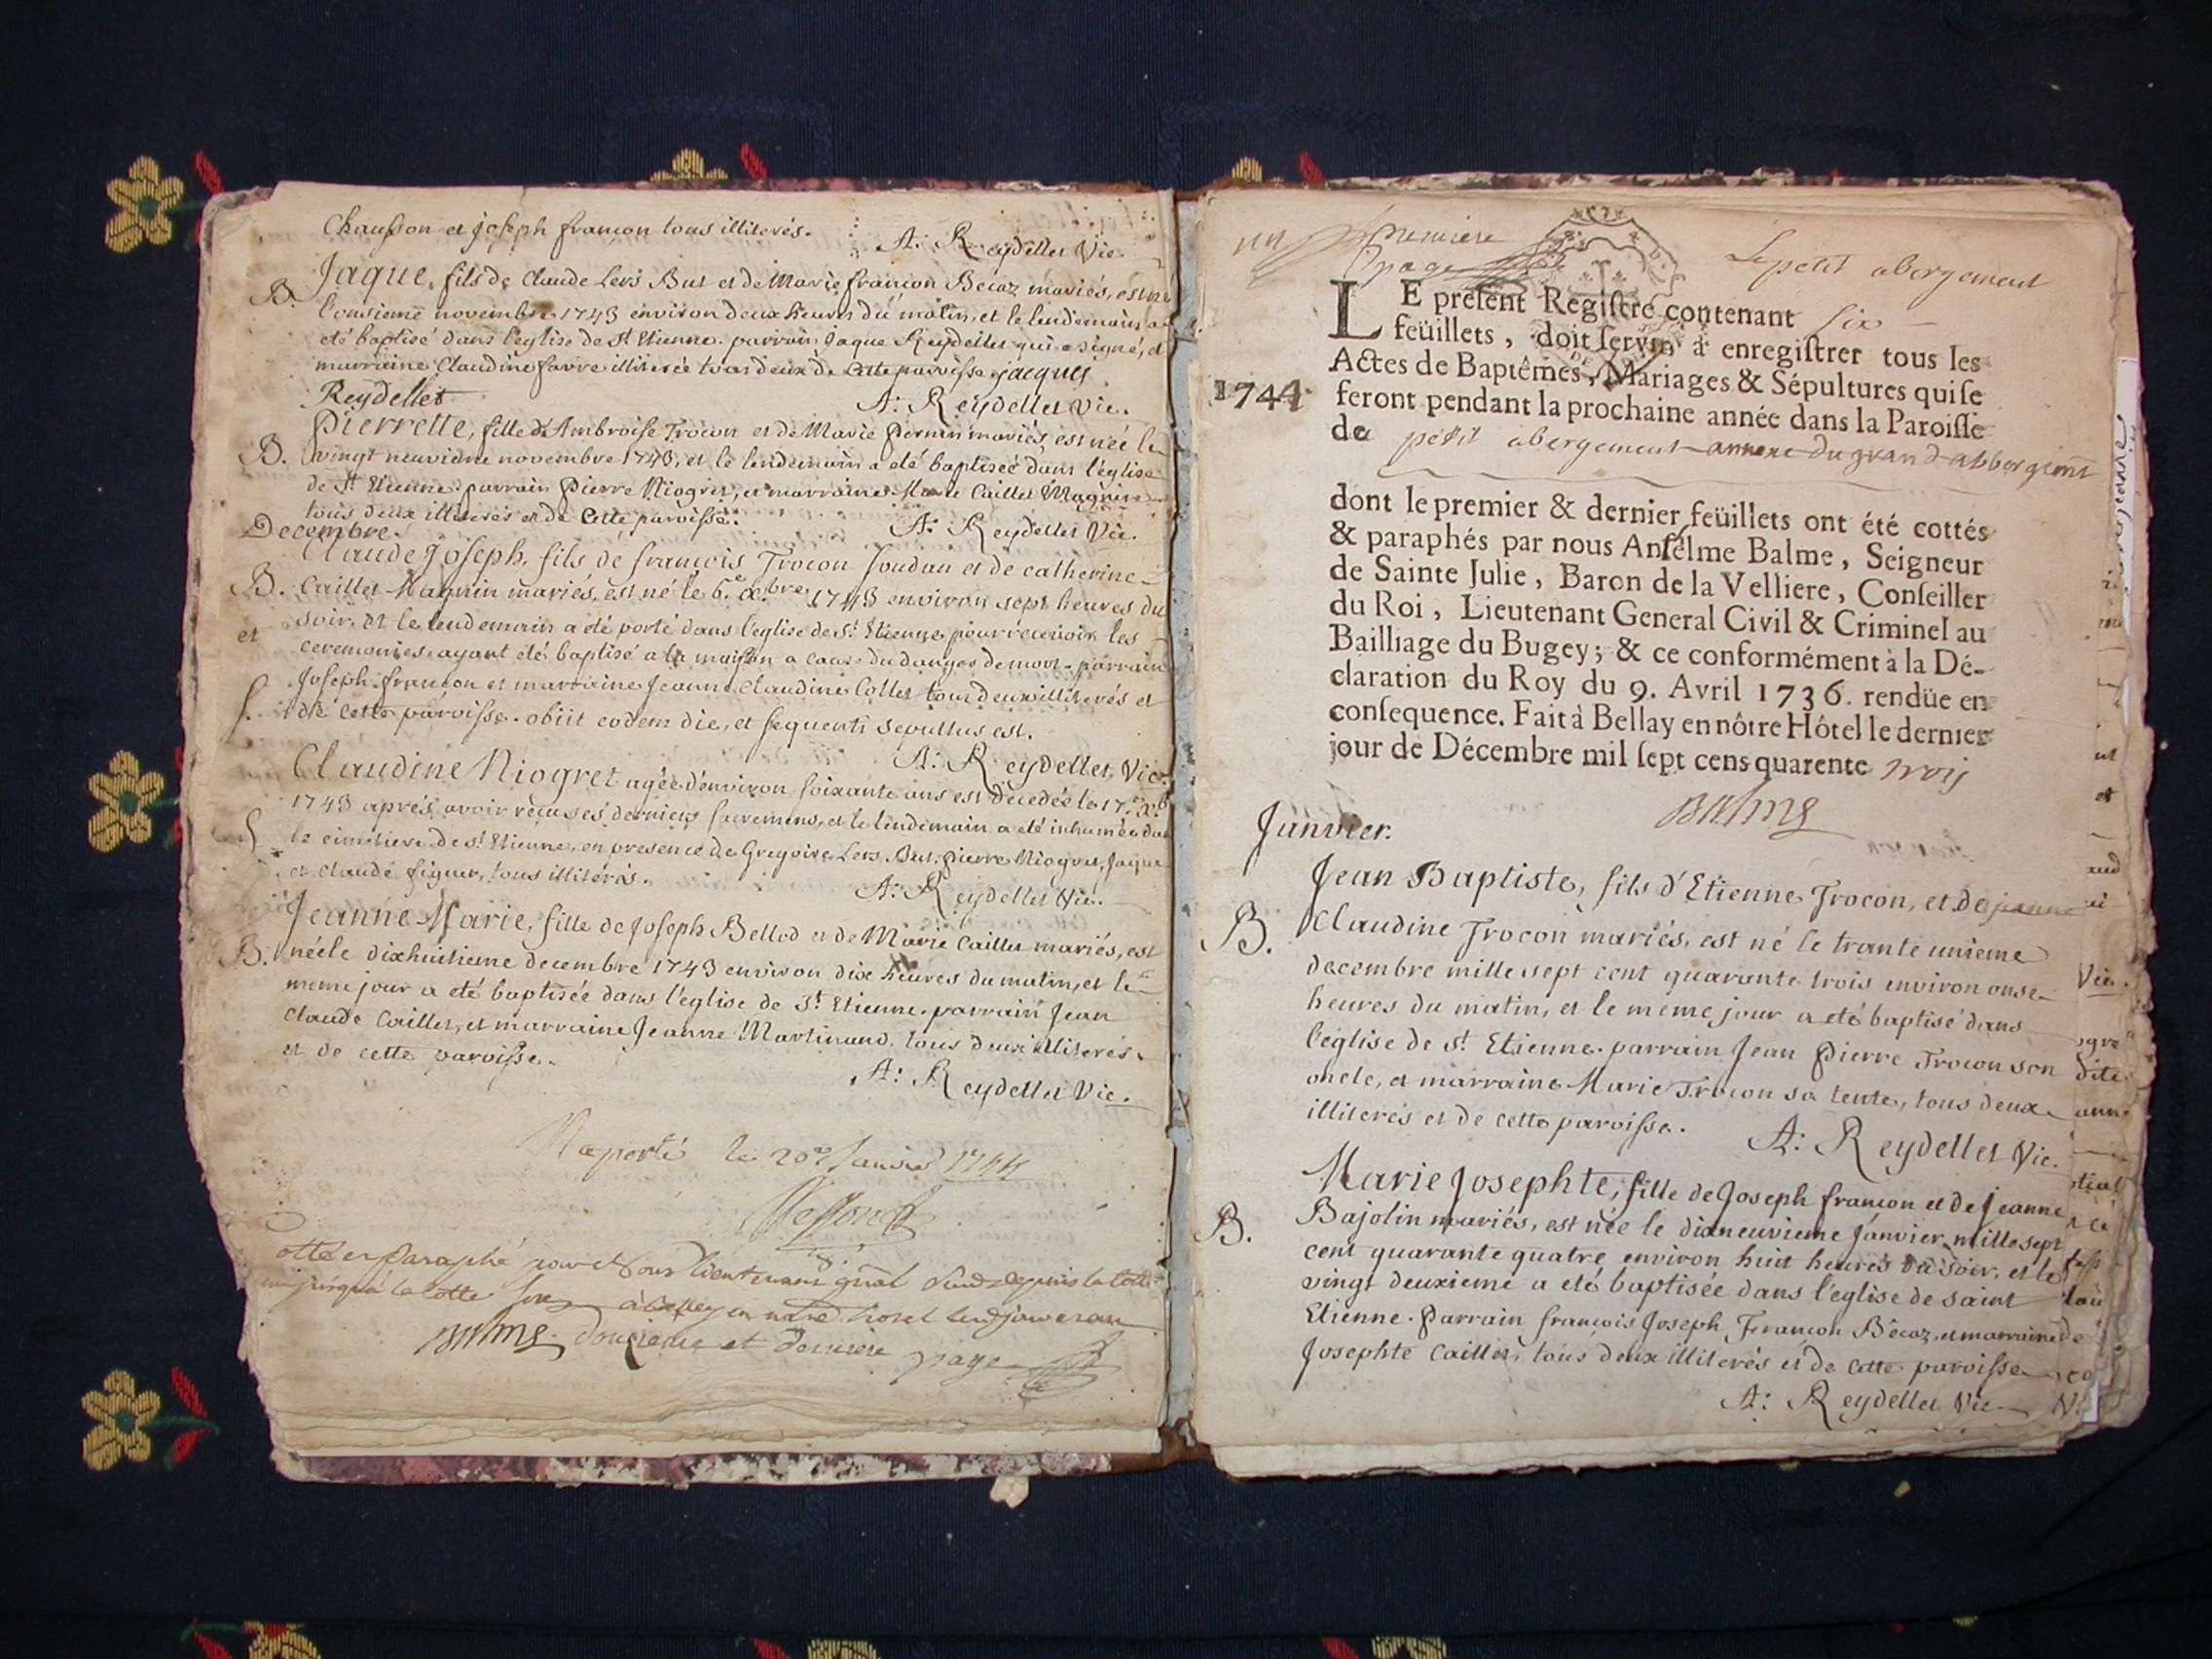 Chausson et joseph françon tous illiterés.
A: Reydellet Vic.
Jaque, fils de Claude Lers But et de Marie françon Becaz mariés, est né
B. l'onsieme novembre 1743 environ deux heures du matin, et le lendemain a
eté baptisé dans l'eglise de St Etienne. parrain jaque Reydellet qui a signé, et
marraine Claudine favre illiterée tous deux de cette paroisse. jacques
Reydellet A: Reydellet Vic.
Pierrette, fille d'Ambroise Trocon et de Marie Pernin mariés, est née le
B. vingt neuvieme novembre 1743, et le lendemain a eté baptiseé dans l'eglise
de St Etienne. parrain Pierre Niogret, et marraine Marie Caillet Magnin
tous deux illiterés et de cette paroisse. A: Reydellet Vic.
Decembre.
Claude Joseph, fils de françois Trocon soudan et de catherine
B. Caillet Magnin mariés, est né le 6e xbre 1743 environ sept heures du
et soir, et le lendemain a eté porté dans l'eglise de St Etienne pour recevoir les
ceremonies, ayant eté baptisé a la maison a cause du danger de mort. parrain
Joseph françon et marraine Jeanne Claudine Collet tous deux illiterés et
S. de cette paroisse. obiit eodem die, et sequenti sepultus est.
A: Reydellet, Vic.
Claudine Niogret agée d'environ soixante ans est decedée le 17e xb
1743 aprés avoir reçu ses derniers sacremens, et le lendemain a eté inhumée dans
S le cimetiere de St Etienne, en presence de Gregoire Lers But, pierre Niogret, Jaque
et claude figuet, tous illiterés.
A: Reydellet Vic.
Jeanne Marie, fille de Joseph Bellod et de Marie Caillet mariés, est
B. née le dixhuitieme decembre 1743 environ dix heures du matin, et le
meme jour a eté baptisée dans l'eglise de St Etienne. parrain Jean
claude Caillet, et marraine Jeanne Martinand, tous deux illiterés
et de cette paroisse.
A: Reydellet Vic.
Raporté le 20e Janvier 1744
Cotté et Paraphé par Nous Lieutenant gnal depuis la cotte
une jusqu'a la cotte six a Belley en notre hotel lesd jour et an
Balme. Douzieme et Derniere page
un premiere
page
Le petit abergement
LE present Registre contenant six
feüillets, doit servir à enregistrer tous les
Actes de Baptêmes, Mariages & Sépultures qui se
1744 feront pendant la prochaine année dans la Paroisse
de petit abergement annexe du grand abbergemt
dont le premier & dernier feüillets ont été cottés
& paraphés par nous Anselme Balme, Seigneur
de Sainte Julie, Baron de la Velliere, Conseiller
du Roi, Lieutenant General Civil & Criminel au
Bailliage du Bugey; & ce conformément à la Dé-
claration du Roy du 9. Avril 1736. rendüe en
consequence. Fait à Bellay en nôtre Hôtel le dernier
jour de Décembre mil sept cens quarente trois
Balme
Janvier.
Jean Baptiste, fils d'Etienne Trocon, et de jeanne
B. Claudine Trocon mariés, est né le trante unieme
decembre mille sept cent quarante trois environ onse
heures du matin, et le meme jour a eté baptisé dans
l'eglise de St Etienne. parrain Jean Pierre Trocon son
oncle, et marraine Marie Trocon sa tente, tous deux
illiterés et de cette paroisse.
A: Reydellet Vic.
Marie Josephte, fille de Joseph françon et de Jeanne
B. Bajolin mariés, est née le dixneuvieme Janvier mille sept
cent quarante quatre environ huit heures du soir, et le
vingt deuxieme a eté baptisée dans l'eglise de saint
Etienne. Parrain françois Joseph Françon Becaz, et marraine
Josephte Caillet, tous deux illiterés et de cette paroisse
A: Reydellet Vic